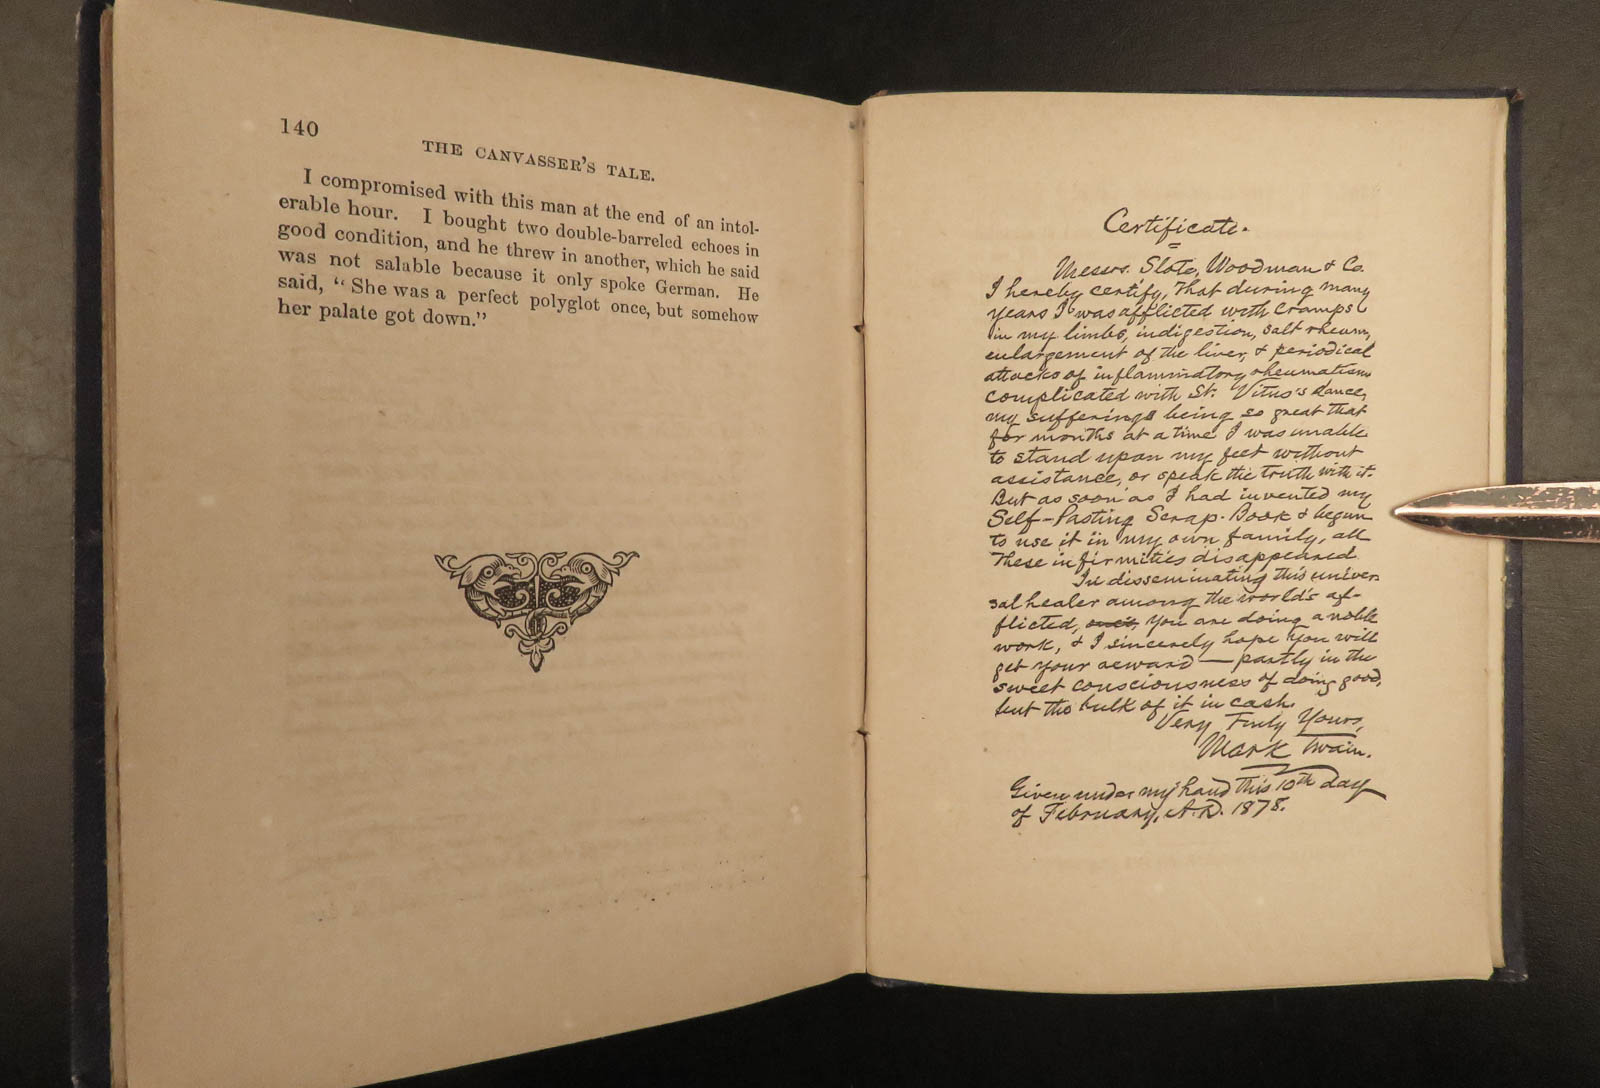 140
THE CANVASSER'S TALE.
I compromised with this man at the end of an intol-
erable hour. I bought two double-barreled echoes in
good condition, and he threw in another, which he said
was not salable because it only spoke German. He
said, "She was a perfect polyglot once, but somehow
her palate got down."
Certificate.
Messrs. Slote, Woodman & Co.
I hereby certify, That during many
years I was afflicted with cramps
in my limbs, indigestion, salt rheum,
enlargement of the liver, & periodical
attacks of inflammatory rheumatism
complicated with St. Vitus's dance,
my sufferings being so great that
for months at a time I was unable
to stand upon my feet without
assistance, or speak the truth with it.
But as soon as I had invented my
Self-Pasting Scrap-Book & begun
to use it in my own family, all
these infirmities disappeared.
In disseminating this univer-
sal healer among the world's af-
flicted, you are doing a noble
work, & I sincerely hope you will
get your reward — partly in the
sweet consciousness of doing good,
but the bulk of it in cash.
Very Truly Yours,
Mark Twain.
Given under my hand this 10th day
of February, A.D. 1878.